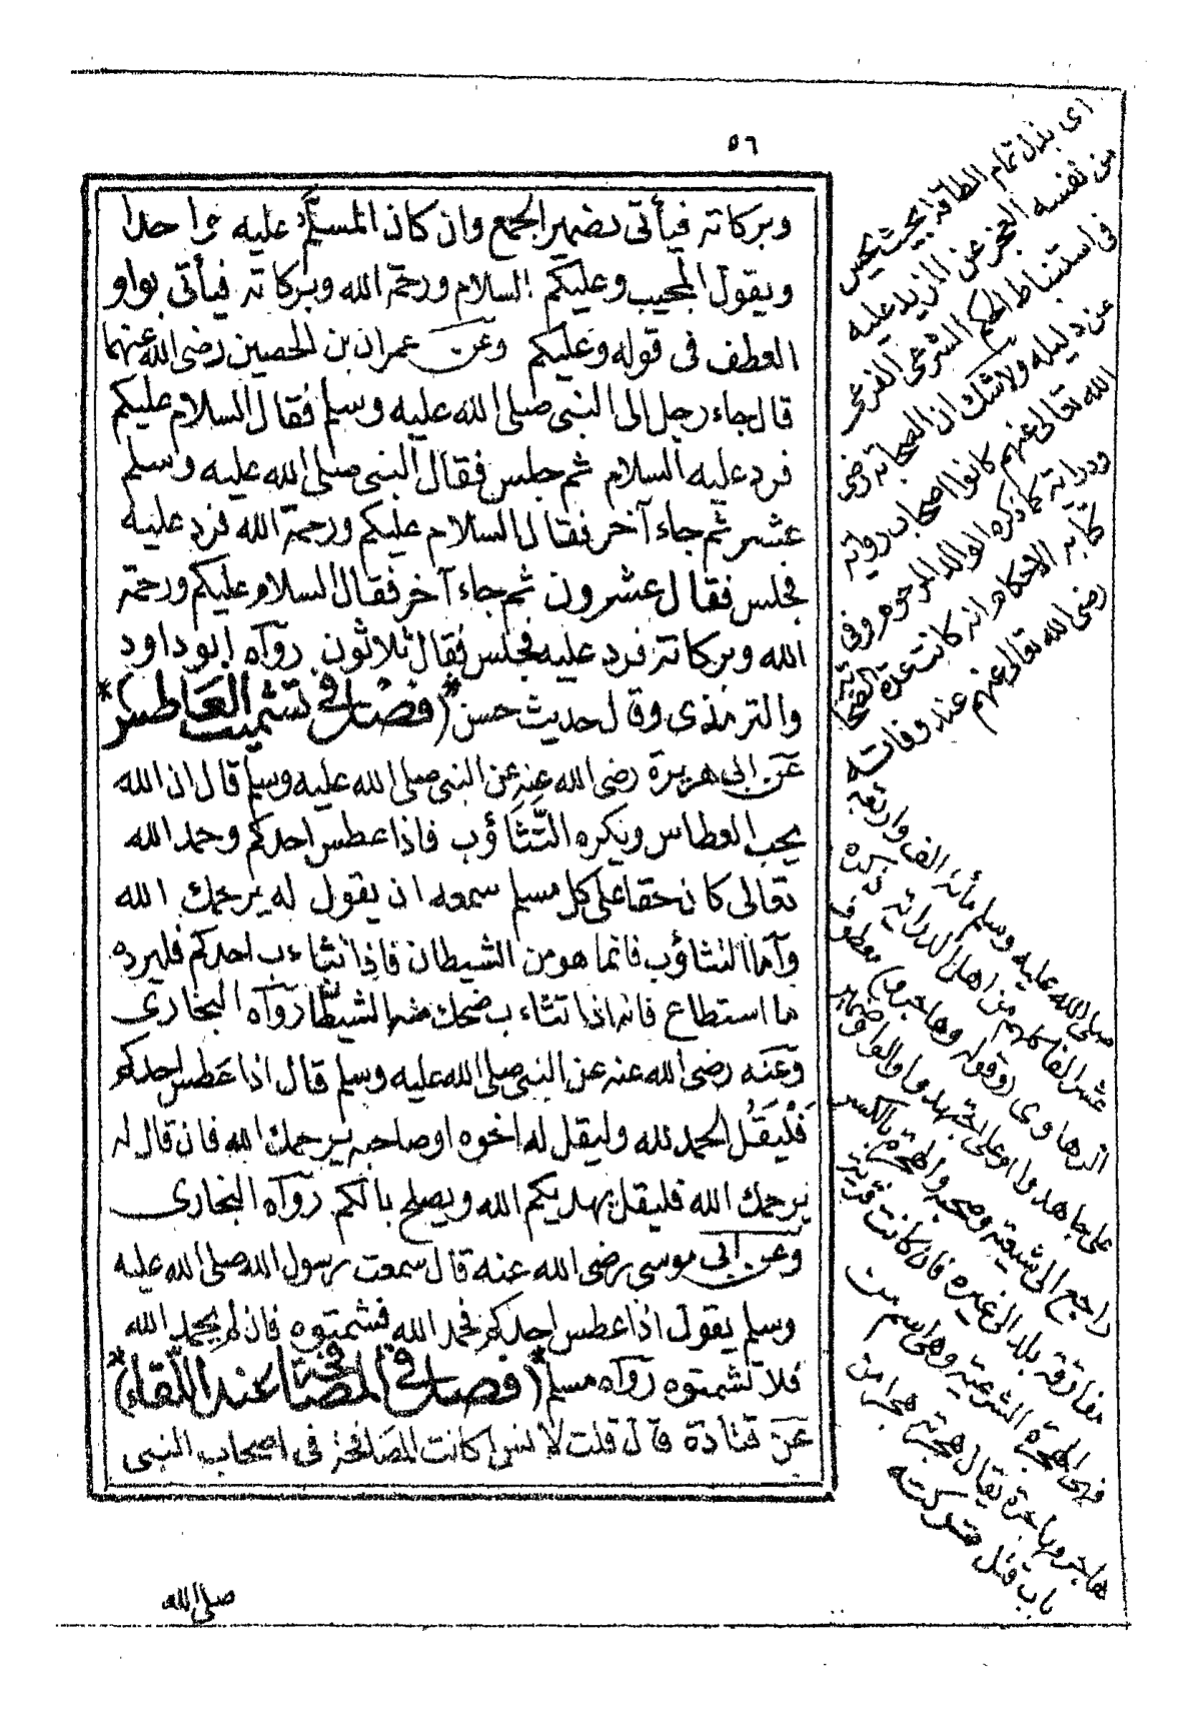 ٥٦
وبركاته فيأتى بضمير الجمع وان كان المسلَّم عليه واحدا
ويقول المجيب وعليكم السلام ورحمة الله وبركاته فيأتى بواو
العطف فى قوله وعليكم وعن عمران بن الحصين رضى الله عنهما
قال جاء رجل الى النبى صلى الله عليه وسلم فقال السلام عليكم
فرد عليه السلام ثم جلس فقال النبى صلى الله عليه وسلم
عشر ثم جاء آخر فقال السلام عليكم ورحمة الله فرد عليه
فجلس فقال عشرون ثم جاء آخر فقال السلام عليكم ورحمة
الله وبركاته فرد عليه فجلس فقال ثلاثون رواه ابو داود
والترمذى وقال حديث حسن *(فصل فى تشميت العاطس)*
عن ابى هريرة رضى الله عنه عن النبى صلى الله عليه وسلم قال ان الله
يحب العطاس ويكره التَّثَاؤب فاذا عطس احدكم وحمد الله
تعالى كان حقا على كل مسلم سمعه ان يقول له يرحمك الله
وأما التثاؤب فانما هو من الشيطان فاذا تثاءب احدكم فليرده
ما استطاع فانه اذا تثاءب ضحك منه الشيطان رواه البخارى
وعنه رضى الله عنه عن النبى صلى الله عليه وسلم قال اذا عطس احدكم
فَلْيَقُل الحمد لله وليقل له اخوه او صاحبه يرحمك الله فان قال له
يرحمك الله فليقل يهديكم الله ويصلح بالكم رواه البخارى
وعن ابى موسى رضى الله عنه قال سمعت رسول الله صلى الله عليه
وسلم يقول اذا عطس احدكم فحمد الله فشمتوه فان لم يحمد الله
فلا تشمتوه رواه مسلم *(فصل فى المصافحة عند اللقاء)*
عن قتادة قال قلت لانس اكانت المصافحة فى اصحاب النبى
صلى الله
اى بذل تمام الطاقة بحيث يحس
من نفسه العجز عن المزيد عليه
فى استنباط الحكم الشرعى الفرعى
عن دليله ولا شك ان الصحابة رضى
الله تعالى عنهم كانوا اصحاب رواية
ودراية كما ذكره الوالد المرحوم وفى
كتابه الاحكام انه كانت عدة الصحابة
رضى الله تعالى عنهم عند وفاته
صلى الله عليه وسلم مأة الف واربعة
عشر الفا كلهم من اهل الدراية ذكره
الرهاوى (وقوله وهاجروا) معطوف
على جاهدوا او على اجتهدوا والواو ضمير
راجع الى شيعته وصحبه والهجرة بالكسر
مفارقة بلد الى غيره فان كانت قربة
فهى الهجرة الشرعية وهى اسم من
هاجر مهاجرة يقال هجرته هجرا من
باب قتل تركته